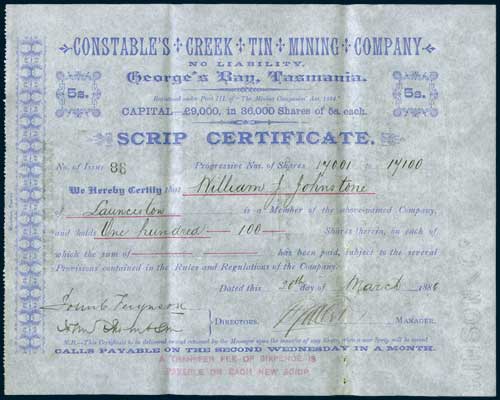 CONSTABLE'S CREEK TIN MINING COMPANY
NO LIABILITY.
George's Bay, Tasmania.
5s. 5s.
Registered under Part III. of "The Mining Companies' Act, 1884."
CAPITAL £9,000, in 36,000 Shares of 5s. each.
SCRIP CERTIFICATE.
No. of Issue 86 Progressive Nos. of Shares 17001 to 17100
We Hereby Certify that William J Johnstone
of Launceston is a Member of the above-named Company,
and holds One hundred 100 Shares therein, on each of
which the sum of has been paid, subject to the several
Provisions contained in the Rules and Regulations of the Company.
Dated this 20th day of March 1886
John C Ferguson
John
DIRECTORS. MANAGER.
N.B.—This Certificate to be delivered to and retained by the Manager upon the transfer of any Share, when a new Scrip will be issued
CALLS PAYABLE ON THE SECOND WEDNESDAY IN A MONTH.
A TRANSFER FEE OF SIXPENCE IS
PAYABLE ON EACH NEW SCRIP